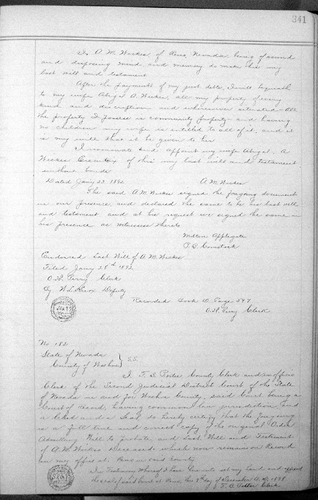 341
I, A. M. Wicker of Reno Nevada being of sound
and disposing mind and memory do make this my
last will and testament
After the payments of my just debts, I will bequeath
to my wife Abigal A. Wicker all my property of every
kind and description and wherever situated. All
the property I possess is community property and having
no children my wife is entitled to all of it, and it
is my will that it be given to her
I nominate and appoint my wife Abigal A.
Wicker Executrix of this my last will and testament
without bonds
Dated Jany 23. A. M. Wicker
The said A. M. Wicker signed the foregoing document
in our presence and declared the same to be his last will
and testament and at his request we signed the same in
his presence as witnesses thereto
William Applegate
Endorsed Last Will of A. M. Wicker
Filed Jany 28th
Perry Clerk
By Deputy
Recorded Book Page
Perry Clerk
No.
State of Nevada
County of Washoe } SS.
I, F. B. Porter County Clerk and ex officio
Clerk of the Second Judicial District Court of the State
of Nevada in and for Washoe County, said Court being a
Court of Record having common law jurisdiction, and
a Clerk and a Seal do hereby certify that the foregoing
is a full true and correct copy of the original Order
Admitting Will to probate, and Last Will and Testament
of A. M. Wicker Deceased which now remains of Record
in my office at Reno said County
In Testimony Whereof I have hereunto set my hand and affixed
the seal of said Court at Reno this day of
F. B. Porter Clerk